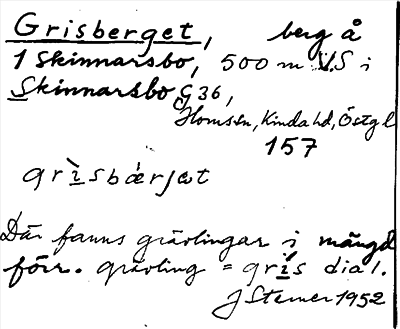 Grisberget, berg å
1 Skinnarsbo, 500 m V.S i
Skinnarsbo G 36,
Kinda hd, Östgl
157
grìsbærjæt
Där fanns grävlingar i mängd
förr. grävling = grìs dial.
J Stemer 1952